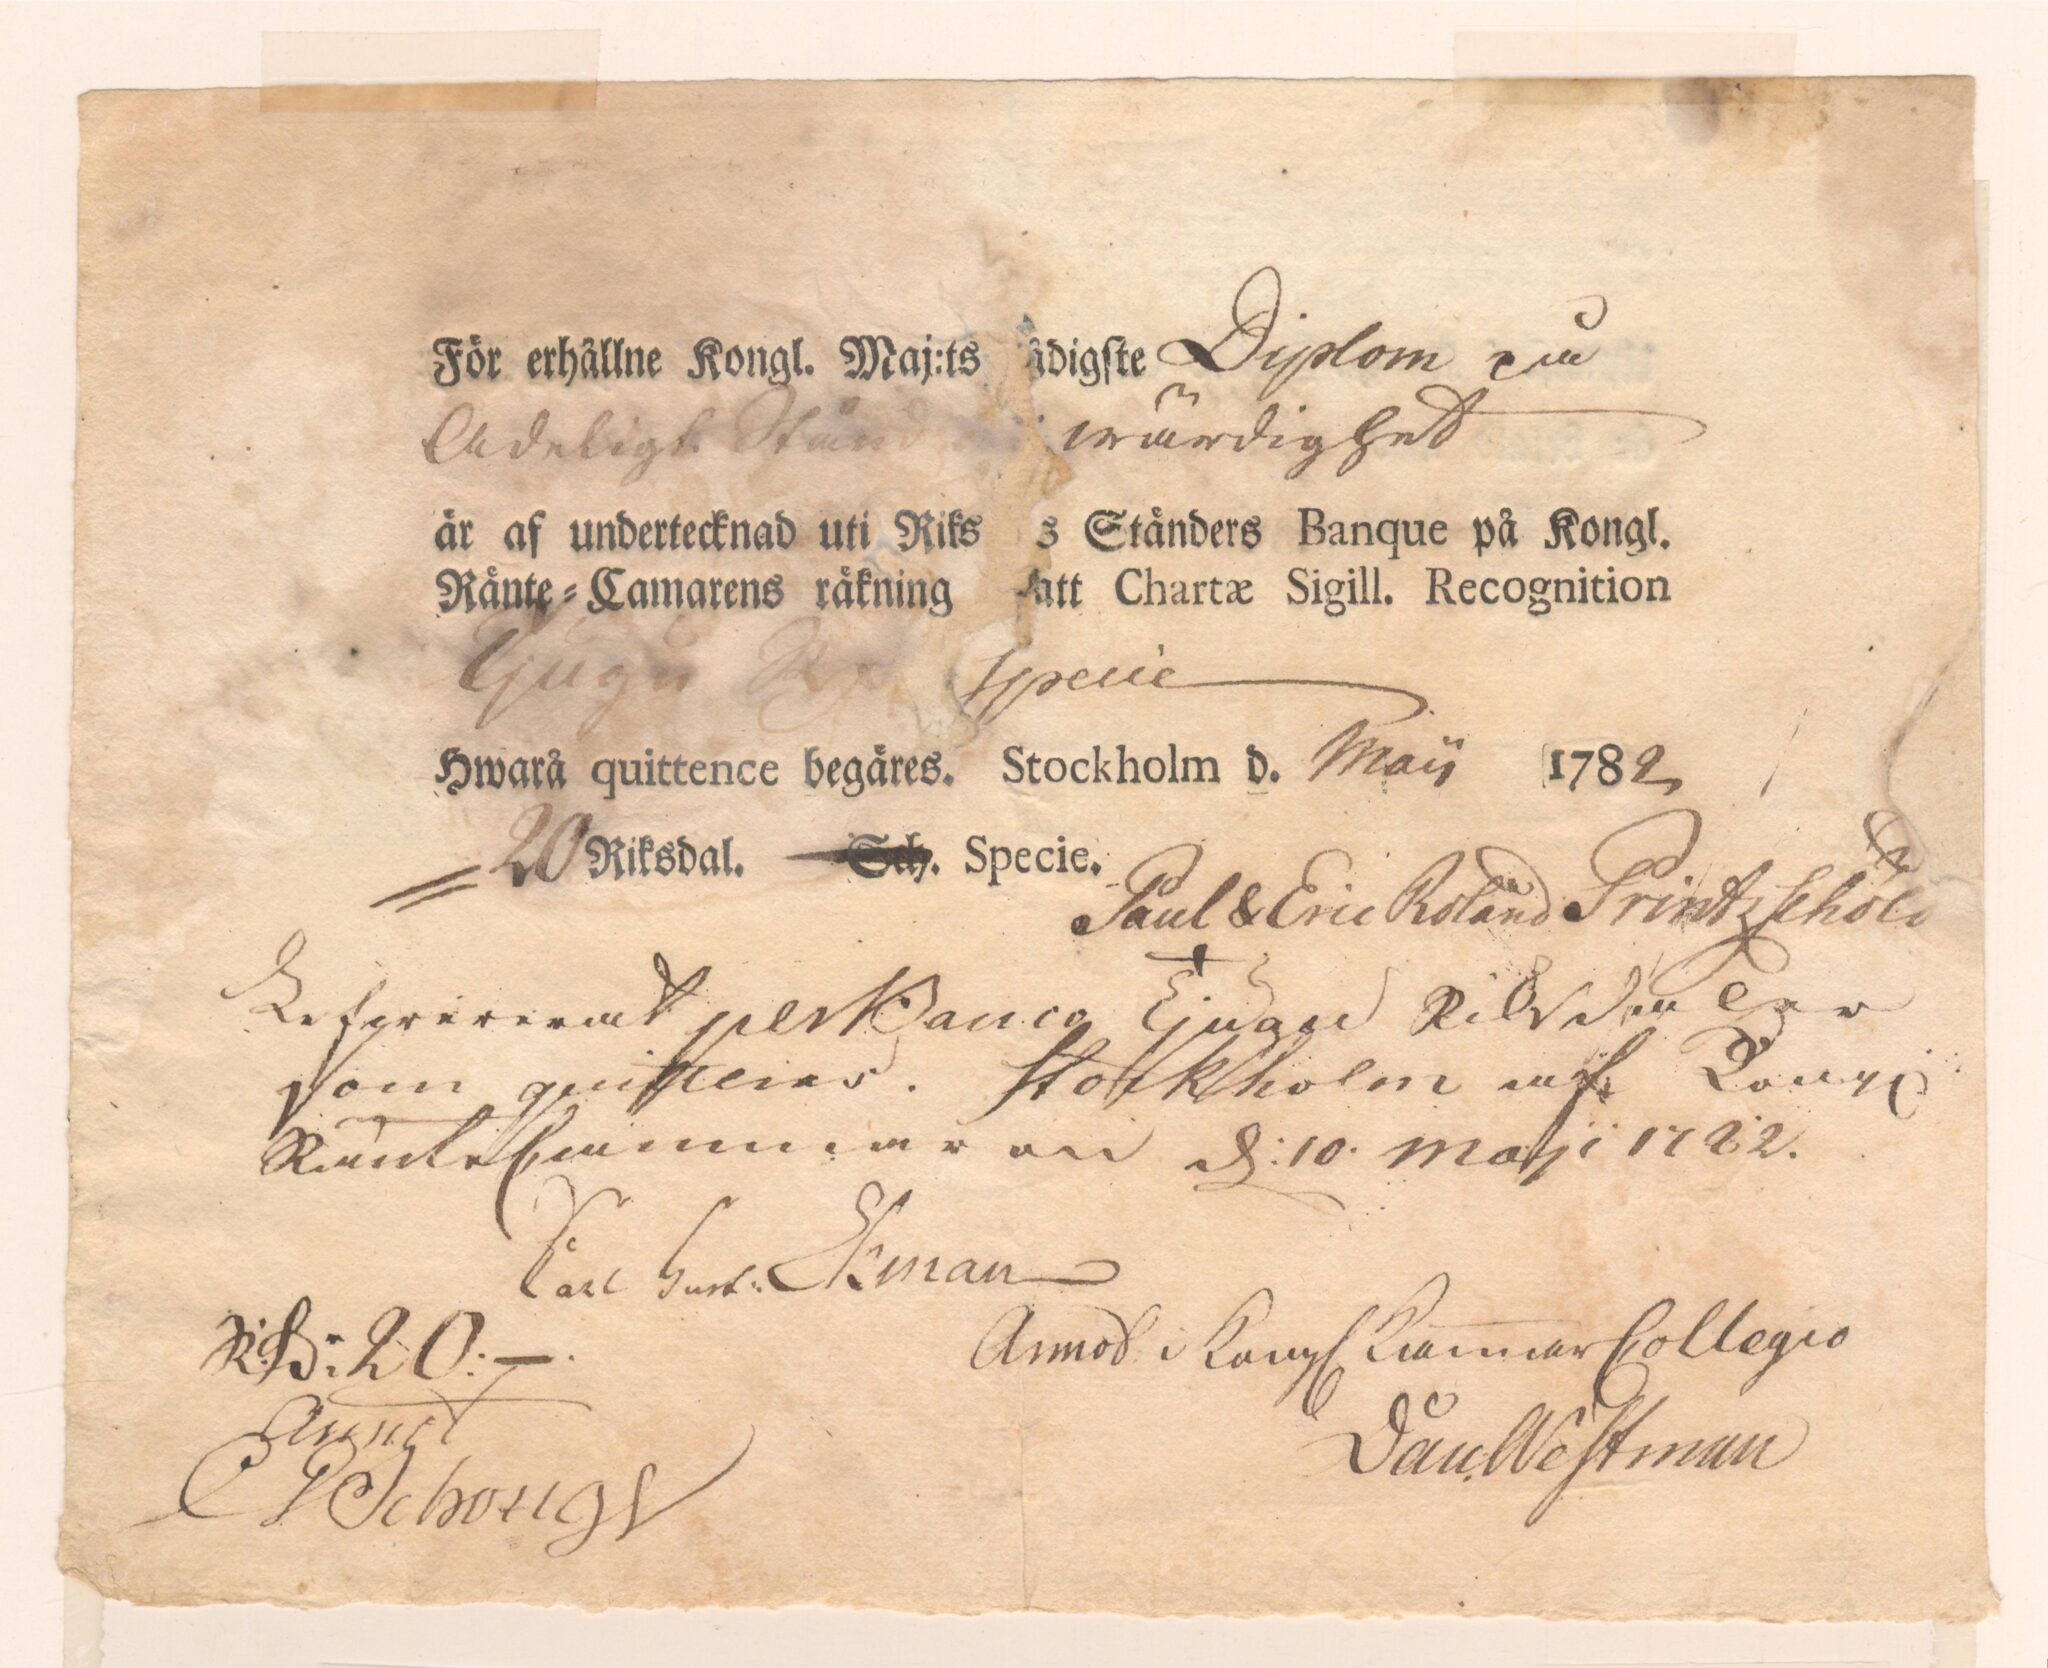 För erhållne Kongl. Maj:ts ådigste Diplom på
Adeligt Stånd wärdighet
är af undertecknad uti Riks s Ständers Banque på Kongl.
Ränte-Camarens räkning satt Chartæ Sigill. Recognition
Tjugu Rd Specie
Hwarå quittence begäres. Stockholm d. Maij 1782
20 Riksdal. Sch. Specie.
Paul & Eric Roland Printzschöld
per Banco Tjugu Riksdaler
som quitteras. Stockholm af Kongl
Ränte Cammaren d: 10. Maji 1782.
Carl Gust: Ekman
Rd: 20. —.
Annot
Annot i Kongl Kammar Collegio
Dan. Westman